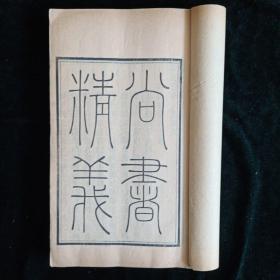 尚書
精義